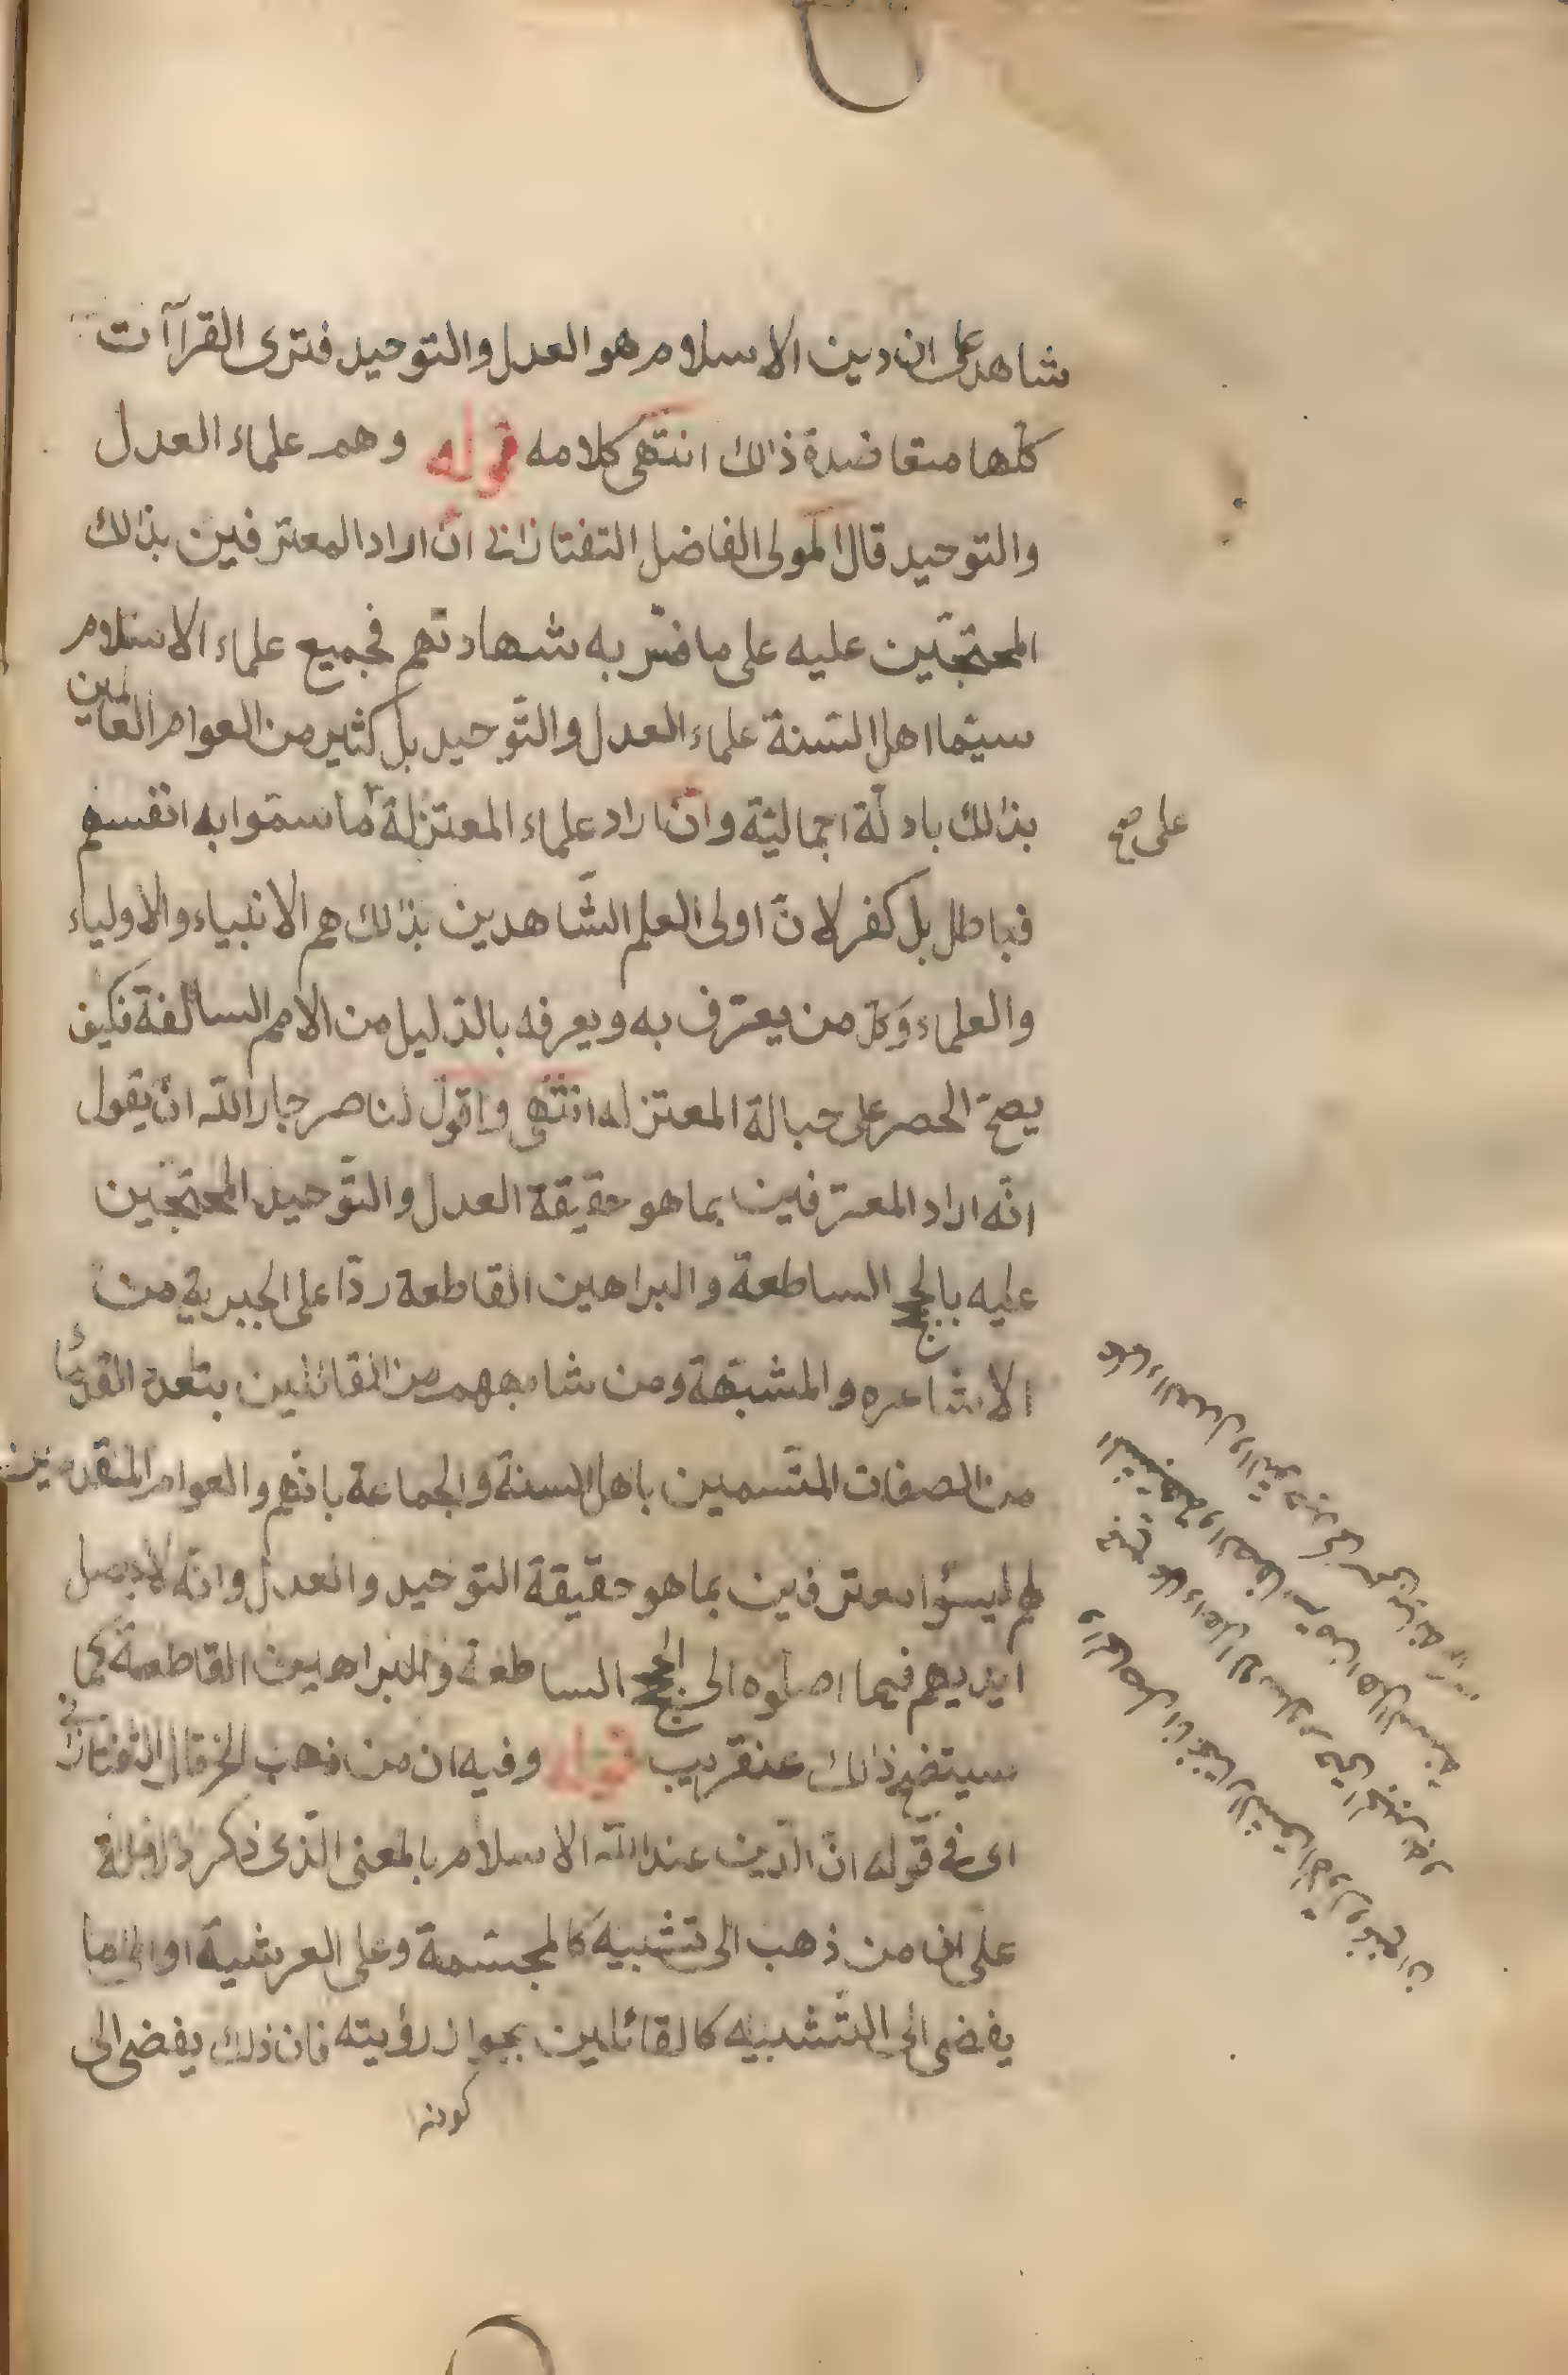 شاهد على ان دين الاسلام هو العدل والتوحيد فترى القراآت
كلّها متعاضدة ذالك انتهى كلامه قوله وهم علماء العدل
والتوحيد قال المولى الفاضل التفتازانى ان اراد المعترفين بذالك
المحتجّين عليه على ما فسّر به شهادتهم فجميع علماء الاسلام
سيّما اهل السّنة علماء العدل والتّوحيد بل كثير من العوام العالمين
بذالك بادلّة اجماليّة وان اراد علماء المعتزلة ما سمّوا به انفسهم
على صح
فباطل بل كفر لانّ اولى العلم الشّاهدين بذالك هم الانبياء والاولياء
والعلماء وكلّ من يعترف به ويعرفه بالدّليل من الامم السالفة فكيف
يصحّ الحصر على حبالة المعتزله انتهى واقول لناصر جار اللّه ان يقول
انّه اراد المعترفين بما هو حقيقة العدل والتّوحيد المحتجّين
عليه بالحجج الساطعة والبراهين القاطعة ردّا على الجبرية من
الاشاعره والمشبّهة ومن شابههم من القائلين بتعدد القدماء
من الصفات المتّسمين باهل السنة والجماعة بانّهم والعوام المتقدمين
لهم ليسوا معترفين بما هو حقيقة التوحيد والعدل وانّه لا يصل
ايديهم فيما اصلوه الى الحجج الساطعة والبراهين القاطعة كما
سيتضح ذالك عنقريب قوله وفيه ان من ذهب الخ قال التفتازانى
اى فى قوله انّ الدّين عند اللّه الاسلام بالمعنى الّذى ذكر دلالة
على ان من ذهب الى تشبيه كالمجسّمة وعلى العرشية او الى ما
يفضى الى التّشبيه كالقائلين بجواز رؤيته فان ذلك يفضى الى
كونه